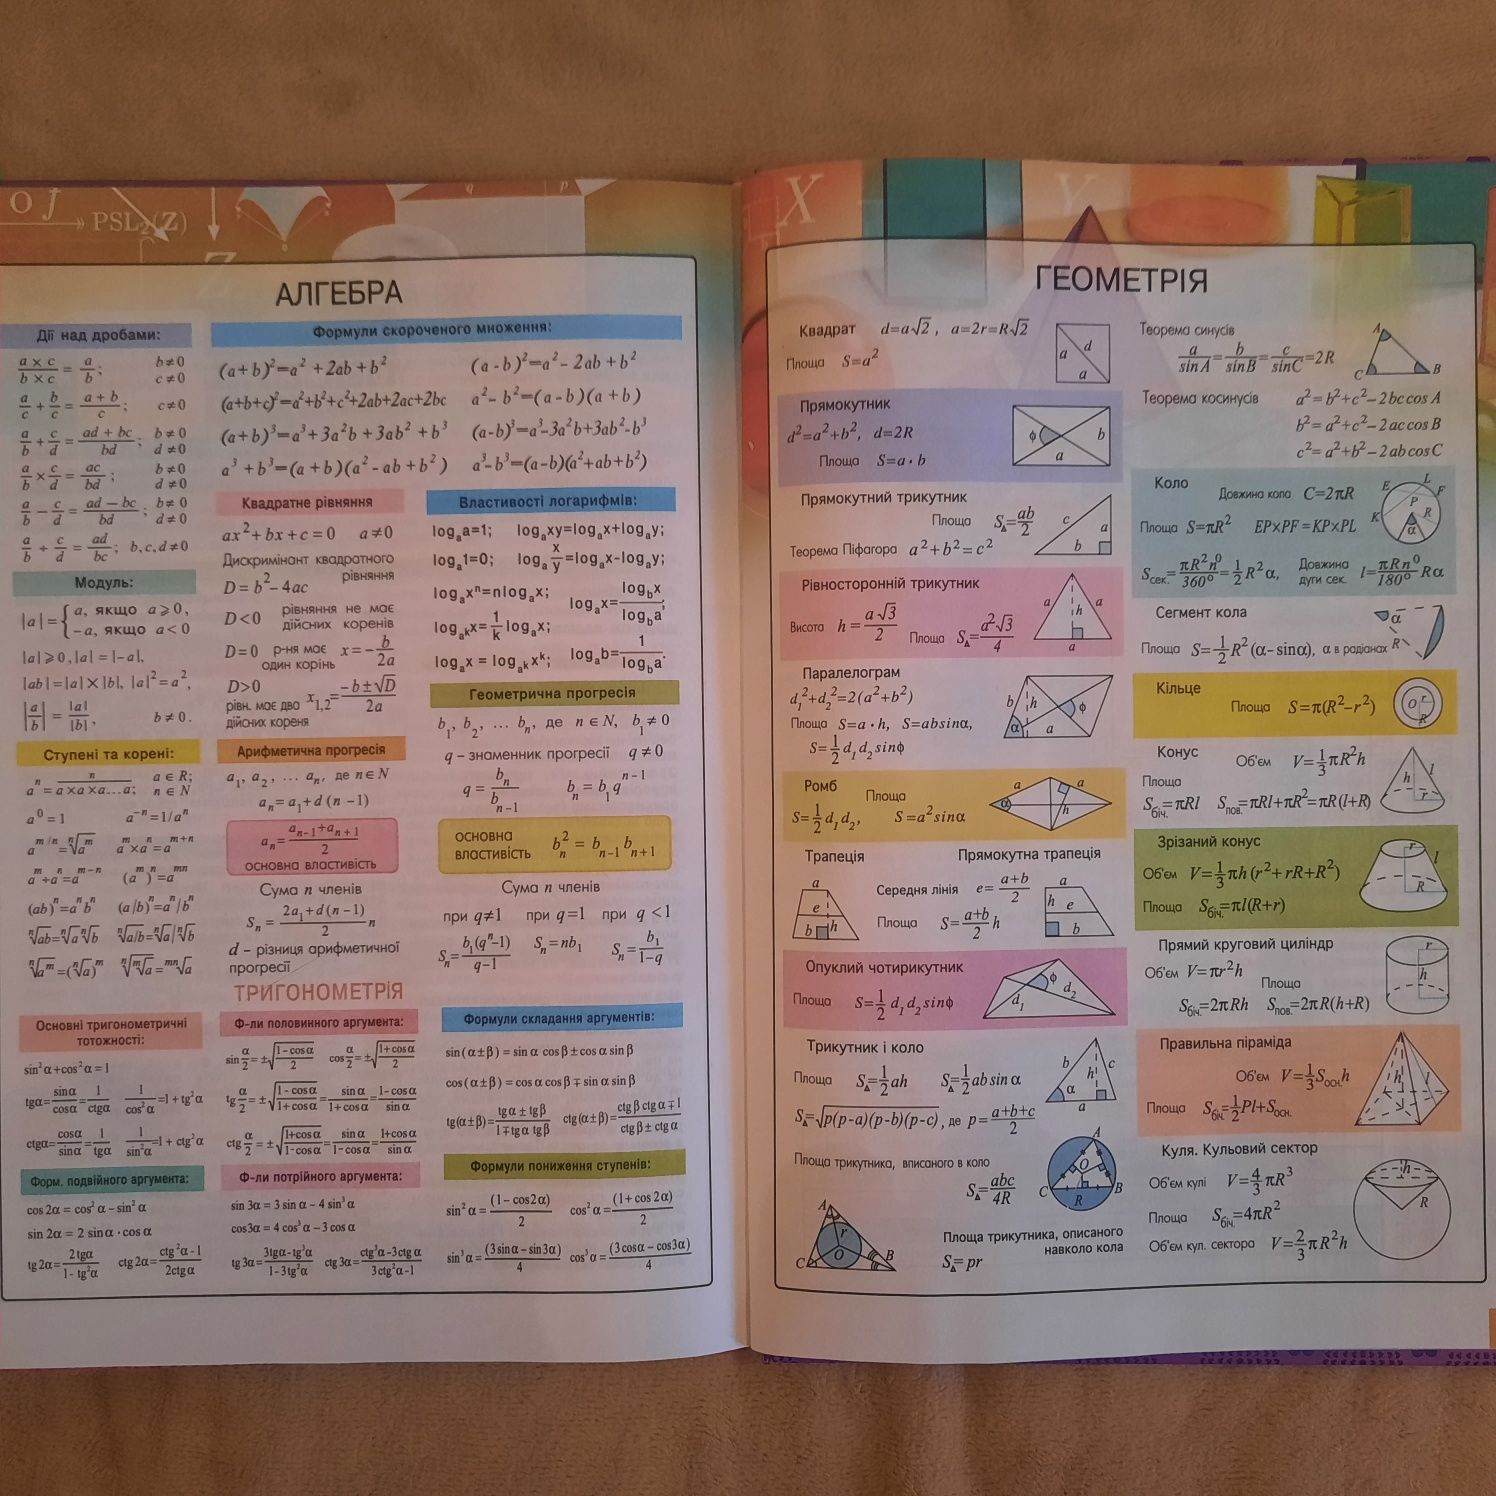 O
PSL₂(Z)
Z
q
p
АЛГЕБРА
Дії над дробами:
(a × c)/(b × c) = a/b; b≠0 c≠0
a/c + b/c = (a + b)/c; c≠0
a/b + c/d = (ad + bc)/bd; b≠0 d≠0
a/b × c/d = ac/bd; b≠0 d≠0
a/b − c/d = (ad − bc)/bd; b≠0 d≠0
a/b ÷ c/d = ad/bc; b,c,d≠0
Модуль:
|a| = { a, якщо a⩾0,
−a, якщо a<0
|a|⩾0, |a| = |−a|,
|ab| = |a| × |b|, |a|² = a²,
|a/b| = |a|/|b|, b≠0.
Ступені та корені:
aⁿ = a×a×a...a; n a∈R; n∈N
a⁰ = 1 a⁻ⁿ = 1/aⁿ
a^(m/n) = ⁿ√aᵐ aᵐ×aⁿ = aᵐ⁺ⁿ
aᵐ÷aⁿ=aᵐ⁻ⁿ (aᵐ)ⁿ=aᵐⁿ
(ab)ⁿ=aⁿbⁿ (a/b)ⁿ=aⁿ/bⁿ
ⁿ√ab=ⁿ√a ⁿ√b ⁿ√a/b=ⁿ√a/ⁿ√b
ⁿ√aᵐ=(ⁿ√a)ᵐ ⁿ√ᵐ√a=ᵐⁿ√a
Формули скороченого множення:
(a+b)²=a²+2ab+b² (a-b)²=a²-2ab+b²
(a+b+c)²=a²+b²+c²+2ab+2ac+2bc a²-b²=(a-b)(a+b)
(a+b)³=a³+3a²b+3ab²+b³ (a-b)³=a³-3a²b+3ab²-b³
a³+b³=(a+b)(a²-ab+b²) a³-b³=(a-b)(a²+ab+b²)
Квадратне рівняння
ax²+bx+c=0 a≠0
Дискримінант квадратного
рівняння
D=b²−4ac
D<0 рівняння не має
дійсних коренів
D=0 р-ня має
один корінь x=−b/2a
D>0
рівн. має два
дійсних кореня x₁,₂=(−b±√D)/2a
Арифметична прогресія
a₁, a₂, ... aₙ, де n∈N
aₙ=a₁+d(n−1)
aₙ=(aₙ₋₁+aₙ₊₁)/2
основна властивість
Сума n членів
Sₙ=(2a₁+d(n−1))/2 n
d – різниця арифметичної
прогресії
Властивості логарифмів:
logₐa=1; logₐxy=logₐx+logₐy;
logₐ1=0; logₐ x/y=logₐx-logₐy;
logₐxⁿ=nlogₐx; logₐx=log_b x/log_b a;
log_aᵏ x=1/k logₐx;
logₐx = log_aᵏ xᵏ; logₐb=1/log_b a.
Геометрична прогресія
b₁, b₂, ... bₙ, де n∈N, b₁≠0
q – знаменник прогресії q≠0
q=bₙ/bₙ₋₁ bₙ=b₁qⁿ⁻¹
основна
властивість bₙ²=bₙ₋₁ bₙ₊₁
Сума n членів
при q≠1 при q=1 при q<1
Sₙ=b₁(qⁿ-1)/(q-1) Sₙ=nb₁ Sₙ=b₁/(1-q)
ТРИГОНОМЕТРІЯ
Основні тригонометричні
тотожності:
sin²α+cos²α=1
tgα=sinα/cosα=1/ctgα 1/cos²α=1+tg²α
ctgα=cosα/sinα=1/tgα 1/sin²α=1+ctg²α
Форм. подвійного аргумента:
cos2α = cos²α−sin²α
sin 2α = 2 sinα·cosα
tg2α=2tgα/(1-tg²α) ctg2α=(ctg²α-1)/2ctgα
Ф-ли половинного аргумента:
sin α/2=±√((1−cosα)/2) cos α/2=±√((1+cosα)/2)
tg α/2=±√((1-cosα)/(1+cosα))=sinα/(1+cosα)=(1-cosα)/sinα
ctg α/2=±√((1+cosα)/(1-cosα))=sinα/(1-cosα)=(1+cosα)/sinα
Ф-ли потрійного аргумента:
sin 3α = 3 sinα − 4 sin³α
cos3α = 4 cos³α − 3 cosα
tg3α=(3tgα-tg³α)/(1-3tg²α) ctg3α=(ctg³α-3ctgα)/(3ctg²α-1)
Формули складання аргументів:
sin(α±β) = sinα cosβ ± cosα sinβ
cos(α±β) = cosα cosβ ∓ sinα sinβ
tg(α±β)=(tgα±tgβ)/(1∓tgα tgβ) ctg(α±β)=(ctgβ ctgα∓1)/(ctgβ±ctgα)
Формули пониження ступенів:
sin²α=(1−cos2α)/2 cos²α=(1+cos2α)/2
sin³α=(3sinα−sin3α)/4 cos³α=(3cosα−cos3α)/4
X
Y
ГЕОМЕТРІЯ
Квадрат d=a√2, a=2r=R√2
Площа S=a²
a d a
Прямокутник
d²=a²+b², d=2R
Площа S=a·b
ϕ b a
Прямокутний трикутник
Площа S▵=ab/2
Теорема Піфагора a²+b²=c²
c a b
Рівносторонній трикутник
Висота h=a√3/2 Площа S▵=a²√3/4
a h a a
Паралелограм
d₁²+d₂²=2(a²+b²)
Площа S=a·h, S=absinα,
S=1/2 d₁d₂sinϕ
b h ϕ α a
Ромб
Площа
S=1/2 d₁d₂, S=a²sinα
a a α h
Трапеція Прямокутна трапеція
Середня лінія e=(a+b)/2
Площа S=(a+b)/2 h
a e b h
a h e b
Опуклий чотирикутник
Площа S=1/2 d₁d₂sinϕ
ϕ d₁ d₂
Трикутник і коло
Площа S▵=1/2ah S▵=1/2absinα
S▵=√p(p-a)(p-b)(p-c), де p=(a+b+c)/2
b c h α a
Площа трикутника, вписаного в коло
S▵=abc/4R
A O C B R
Площа трикутника, описаного
навколо кола
S▵=pr
A r O C B
Теорема синусів
a/sinA=b/sinB=c/sinC=2R
A C B
Теорема косинусів a²=b²+c²−2bccosA
b²=a²+c²−2accosB
c²=a²+b²−2abcosC
Коло
Довжина кола C=2πR
Площа S=πR² EP×PF=KP×PL
Sсек.=πR²n⁰/360°=1/2R²α, Довжина
дуги сек. l=πRn⁰/180°=Rα
E L F K P R α
Сегмент кола
Площа S=1/2R²(α−sinα), α в радіанах
α R
Кільце
Площа S=π(R²−r²)
O r R
Конус
Об'єм V=1/3πR²h
Площа
Sбіч.=πRl Sпов.=πRl+πR²=πR(l+R)
h l r
Зрізаний конус
Об'єм V=1/3πh(r²+rR+R²)
Площа Sбіч.=πl(R+r)
r l R
Прямий круговий циліндр
Об'єм V=πr²h
Площа
Sбіч.=2πRh Sпов.=2πR(h+R)
r h
Правильна піраміда
Об'єм V=1/3Sосн.h
Площа Sбіч.=1/2Pl+Sосн.
h l
Куля. Кульовий сектор
Об'єм кулі V=4/3πR³
Площа Sбіч.=4πR²
Об'єм кул. сектора V=2/3πR²h
h R